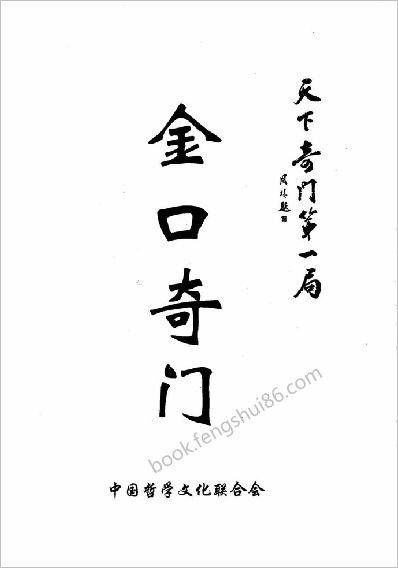 天下奇门第一局
金口奇门
book.fengshui86.com
中国哲学文化联合会